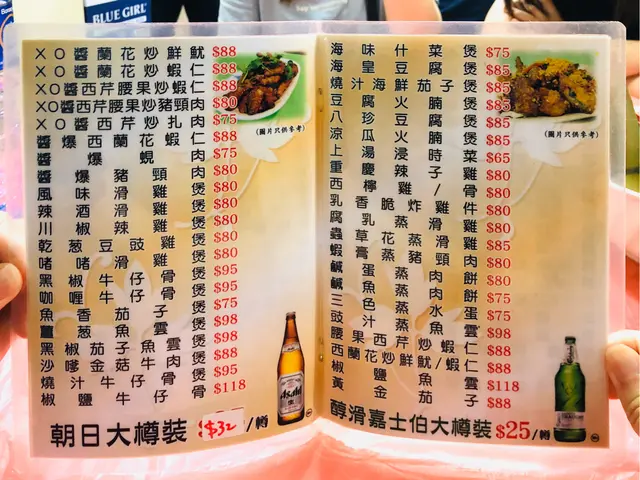 BLUE GIRL
XO醬蘭花炒鮮魷 $88
XO醬蘭花炒蝦仁 $88
XO醬西芹腰果炒蝦仁 $88
XO醬西芹腰果炒豬頸肉 $80
XO醬西芹炒扎肉 $75
醬爆西蘭花蝦仁 $88
醬爆蜆肉 $75
醬爆豬頸肉 $80
風味滑雞煲 $80
辣酒滑雞煲 $80
川椒辣雞煲 $80
乾葱豆豉雞煲 $80
啫啫滑雞煲 $80
黑椒牛仔骨煲 $95
咖喱牛仔骨煲 $95
魚香茄子煲 $75
薑葱魚雲煲 $98
黑椒茄子魚雲煲 $98
沙嗲金菇牛肉煲 $88
燒汁牛仔骨 $95
椒鹽牛仔骨 $118
(圖片只供參考)
Asahi
朝日大樽裝 $32/樽
海味什菜煲 $75
海皇豆腐煲 $85
燒汁海鮮茄子煲 $85
豆腐火腩煲 $85
八珍豆腐煲 $85
涼瓜火腩煲 $85
上湯浸時菜 $65
重慶辣子雞 $80
西檸雞/骨 $80
乳香脆炸雞件 $80
腐乳蒸滑雞 $80
蟲草花蒸滑雞 $85
蝦膏蒸豬頸肉 $80
鹹蛋蒸肉餅 $80
鹹魚蒸肉餅 $75
三色蒸水蛋 $75
豉汁蒸魚雲 $98
腰果西芹炒蝦仁 $88
西蘭花炒鮮魷/蝦仁 $88
椒鹽魚雲 $118
黃金茄子 $88
(圖片只供參考)
醇滑嘉士伯大樽裝 $25/樽